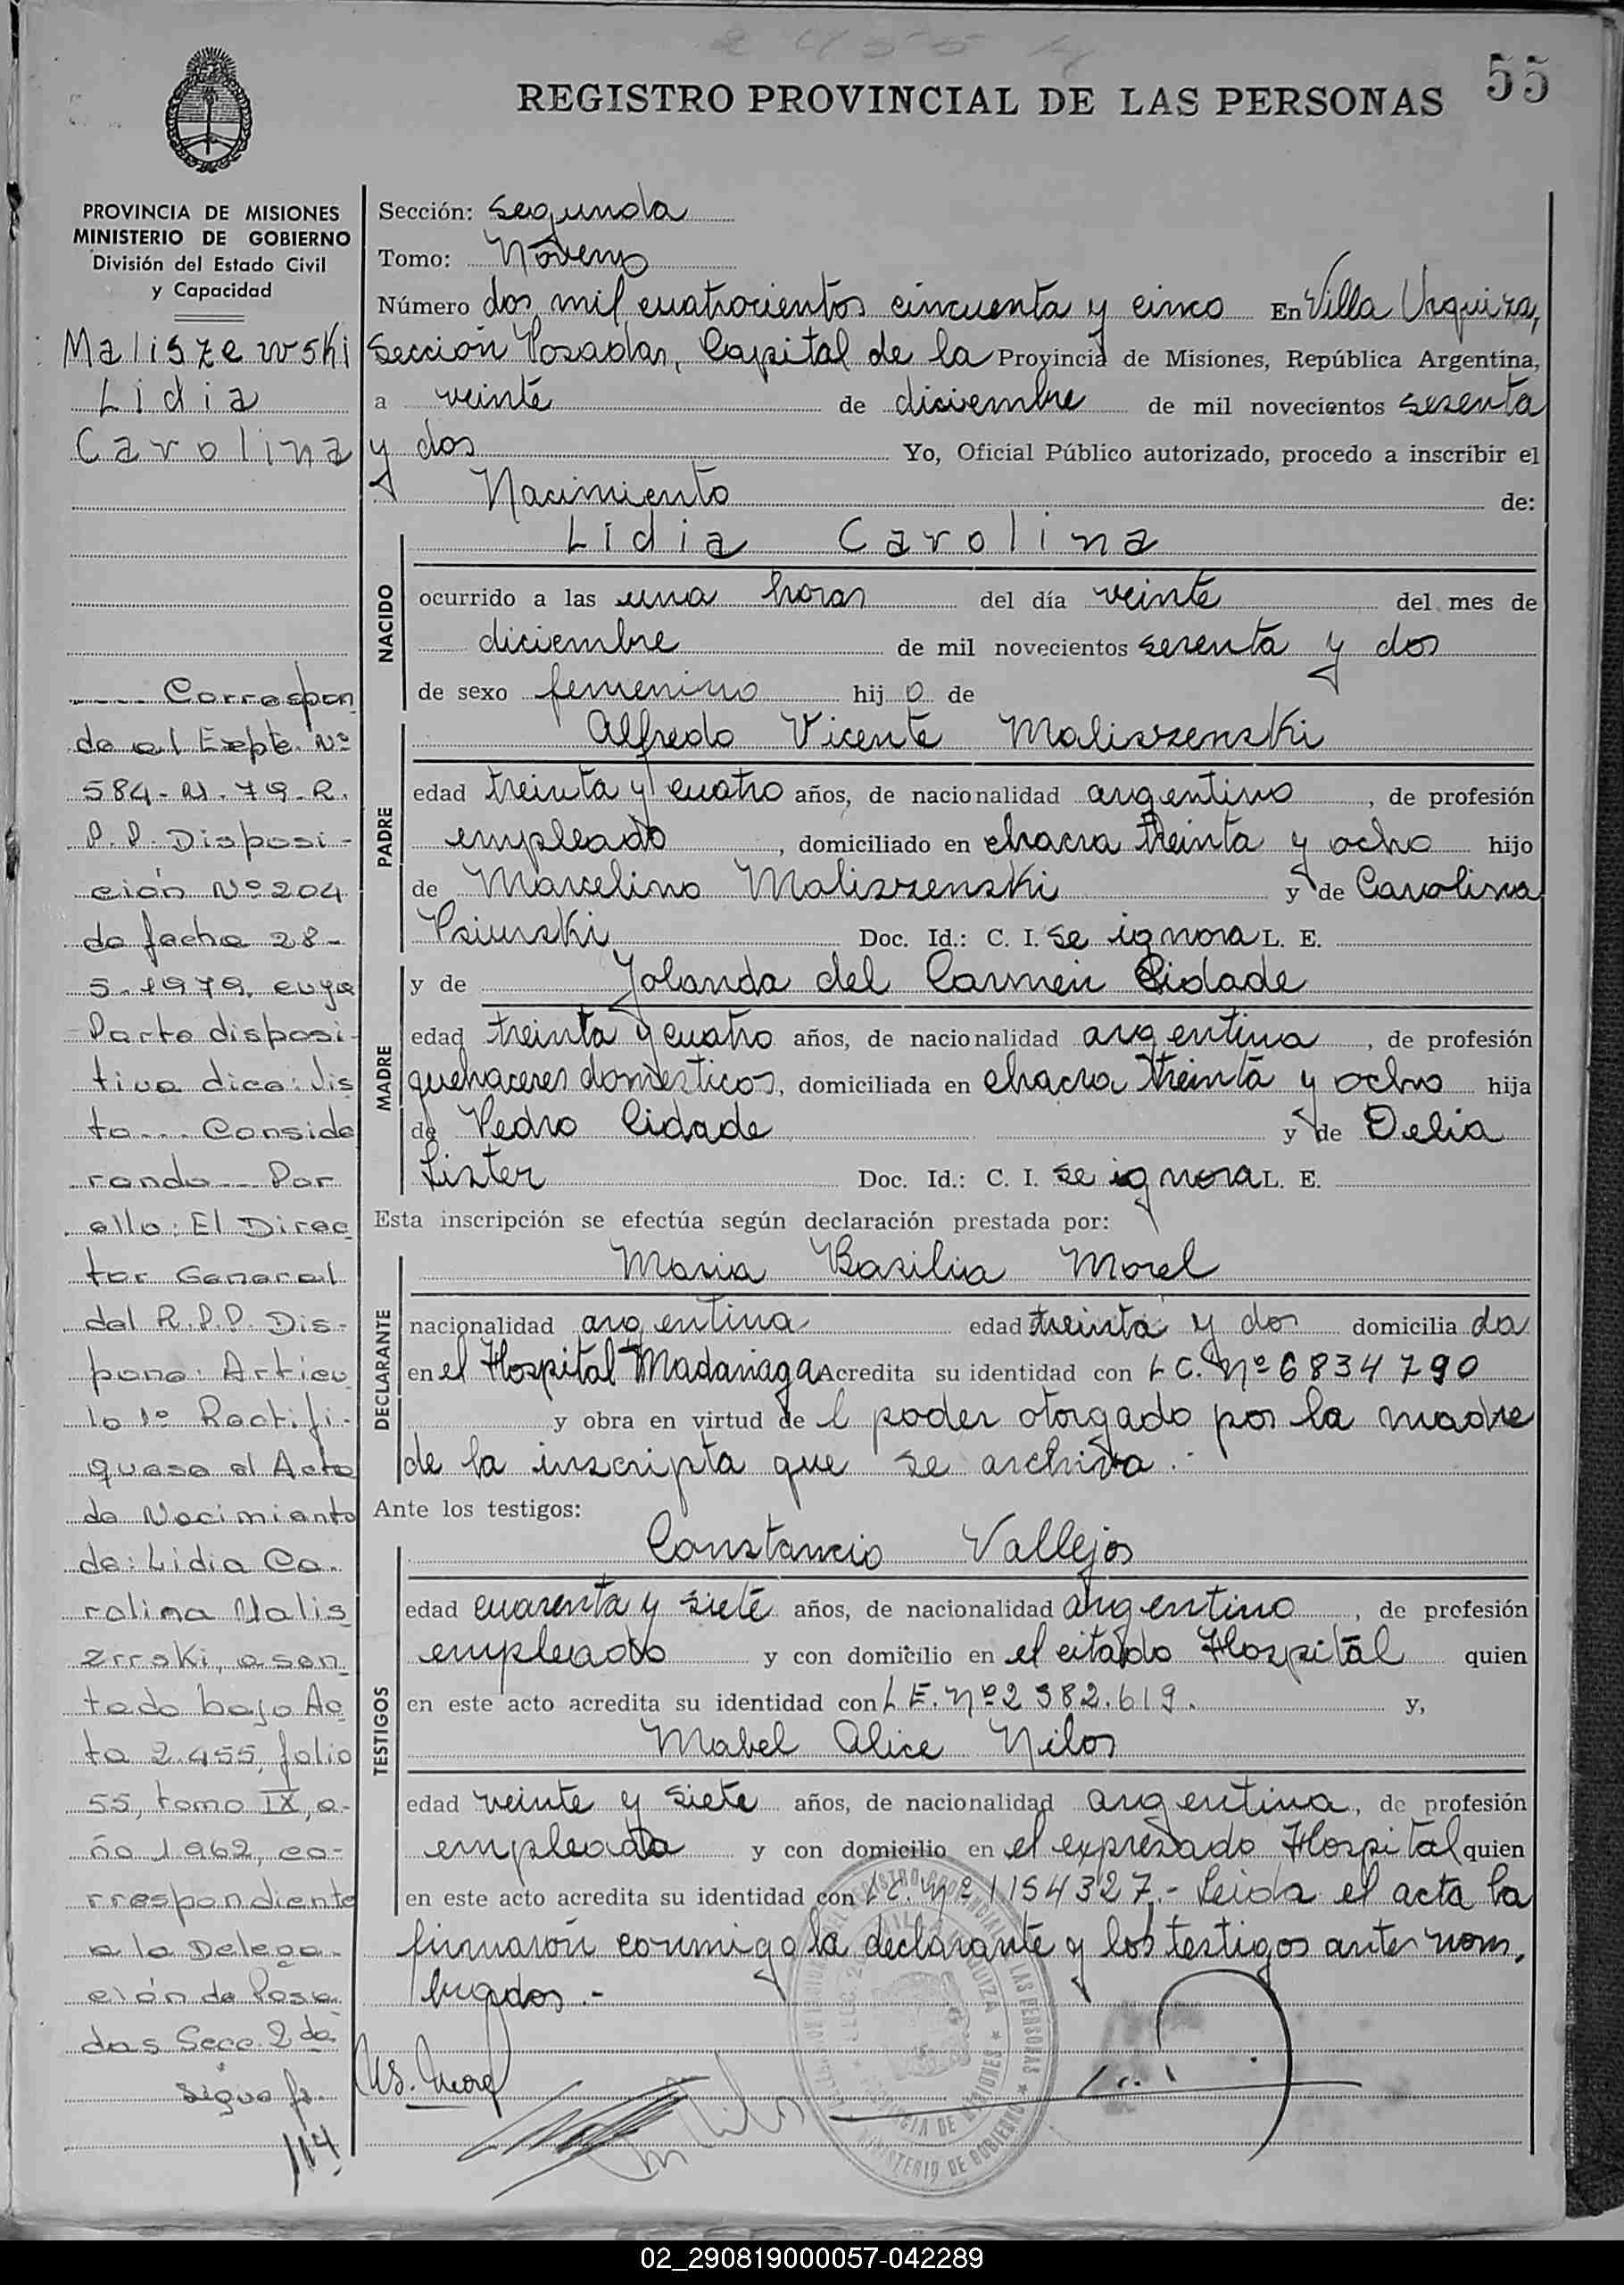 55
REGISTRO PROVINCIAL DE LAS PERSONAS
PROVINCIA DE MISIONES
MINISTERIO DE GOBIERNO
División del Estado Civil
y Capacidad
Maliszewski
Lidia
Carolina
---- Correspon
de al Expte. Nº
584-M-79-R.
P.P. Disposi-
ción Nº 204
de fecha 28-
5-1979, cuya
Parte disposi-
tiva dice: Vis
to--- Conside
rando--- Por
ello: El Direc
tor General
del R.P.P. Dis-
pone: Artícu
lo 1º Rectifí-
quese el Acta
de Nacimiento
de: Lidia Ca-
rolina Malis
zenski, asen
tado bajo Ac
ta 2.455, folio
55, tomo IX, a-
ño 1962, co-
rrespondiente
a la Delega-
ción de Posa
das Secc. 2da
sigue fs.
114
Sección: segunda
Tomo: Noveno
Número dos mil cuatrocientos cincuenta y cinco En Villa Urquiza,
Sección Posadas, Capital de la Provincia de Misiones, República Argentina,
a veinte de diciembre de mil novecientos sesenta
y dos Yo, Oficial Público autorizado, procedo a inscribir el
Nacimiento de:
NACIDO
Lidia Carolina
ocurrido a las una horas del día veinte del mes de
diciembre de mil novecientos sesenta y dos
de sexo femenino hij a de
PADRE
Alfredo Vicente Maliszenski
edad treinta y cuatro años, de nacionalidad argentino, de profesión
empleado, domiciliado en chacra treinta y ocho hijo
de Marcelino Maliszenski y de Carolina
Psiurski Doc. Id.: C. I. se ignora L. E.
MADRE
y de Yolanda del Carmen Cidade
edad treinta y cuatro años, de nacionalidad argentina, de profesión
quehaceres domesticos, domiciliada en chacra treinta y ocho hija
de Pedro Cidade y de Delia
Lister Doc. Id.: C. I. se ignora L. E.
Esta inscripción se efectúa según declaración prestada por:
DECLARANTE
Maria Basilia Morel
nacionalidad argentina edad treinta y dos domicilia da
en el Hospital Madariaga Acredita su identidad con L C. Nº 6834790
y obra en virtud de l poder otorgado por la madre
de la inscripta que se archiva.-
Ante los testigos:
TESTIGOS
Constancio Vallejos
edad cuarenta y siete años, de nacionalidad argentino, de profesión
empleado y con domicilio en el citado Hospital quien
en este acto acredita su identidad con L E. Nº 2 582.619. y,
Mabel Alice Nilos
edad veinte y siete años, de nacionalidad argentina, de profesión
empleada y con domicilio en el expresado Hospital quien
en este acto acredita su identidad con L C. Nº 1154327.- Leida el acta la
firmarón conmigo la declarante y los testigos antes nom-
brados.-
02_290819000057-042289